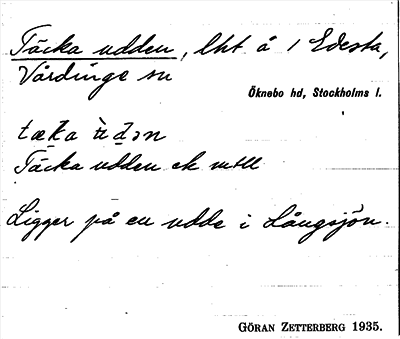 Täcka udden, lht å 1 Edesta,
Vårdinge sn
Öknebo hd, Stockholms l.
tæka ùdən
Täcka udden ek
Ligger på en udde i Långsjön.
GÖRAN ZETTERBERG 1935.